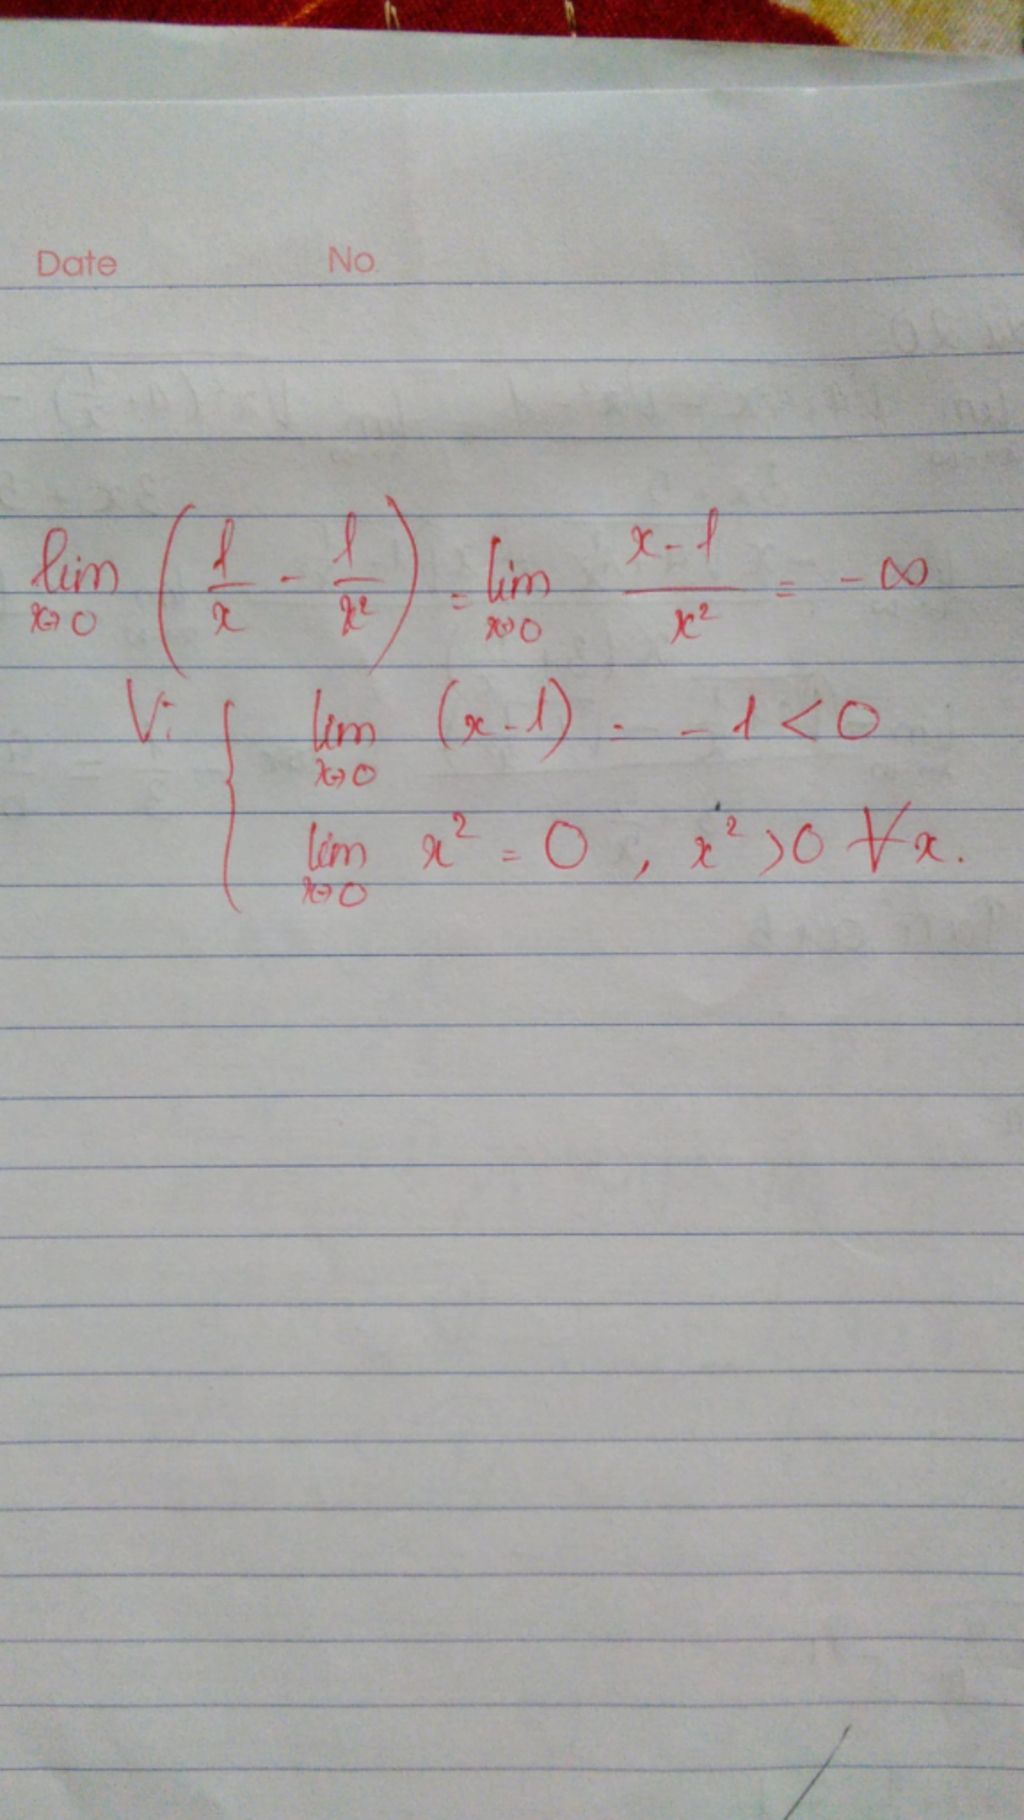 Date No
lim x→0 (1/x - 1/x²) = lim x→0 (x-1)/x² = -∞
Vì { lim x→0 (x-1) = -1 < 0
lim x→0 x² = 0, x² > 0 ∀x.